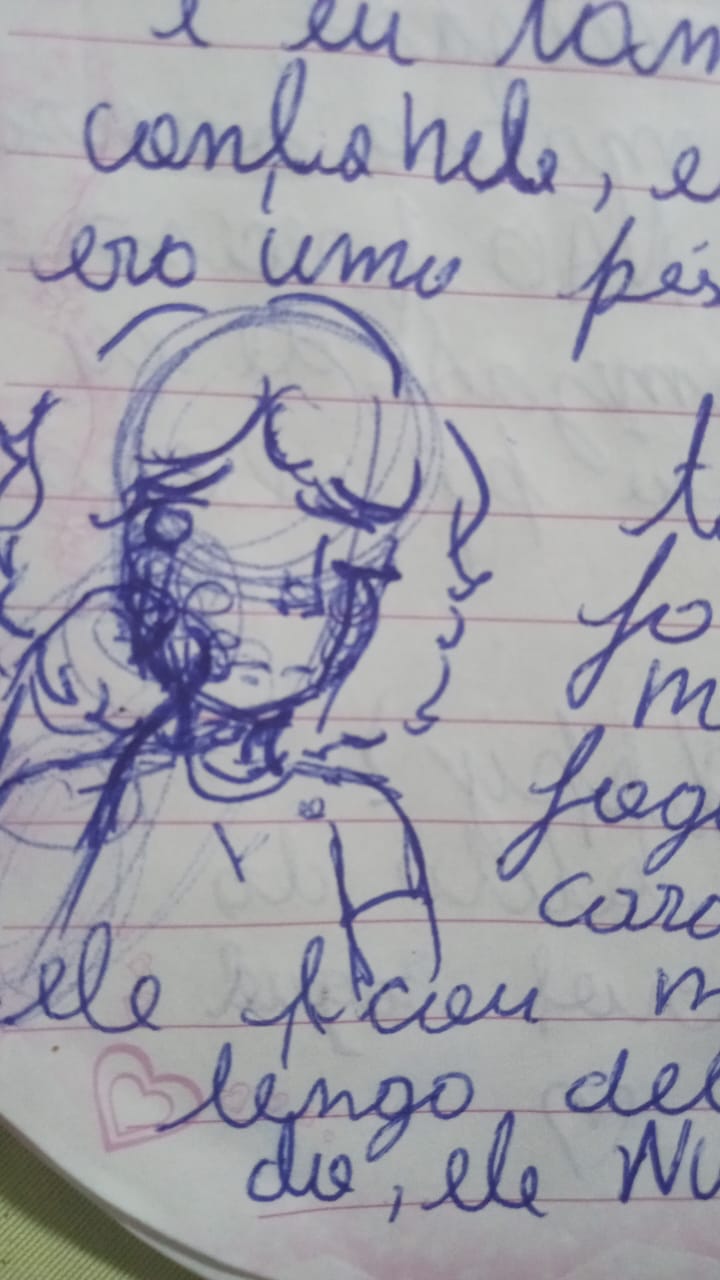 e eu tam
confia nele, e
era uma pés
t
fo
m
fogo
cara
ele ficou m
longo del
da, ele NU